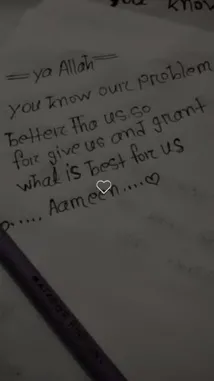 you know
=ya Allah=
you know our problem
better tha us.so
for give us and grant
what is best for us
Aameen....♡